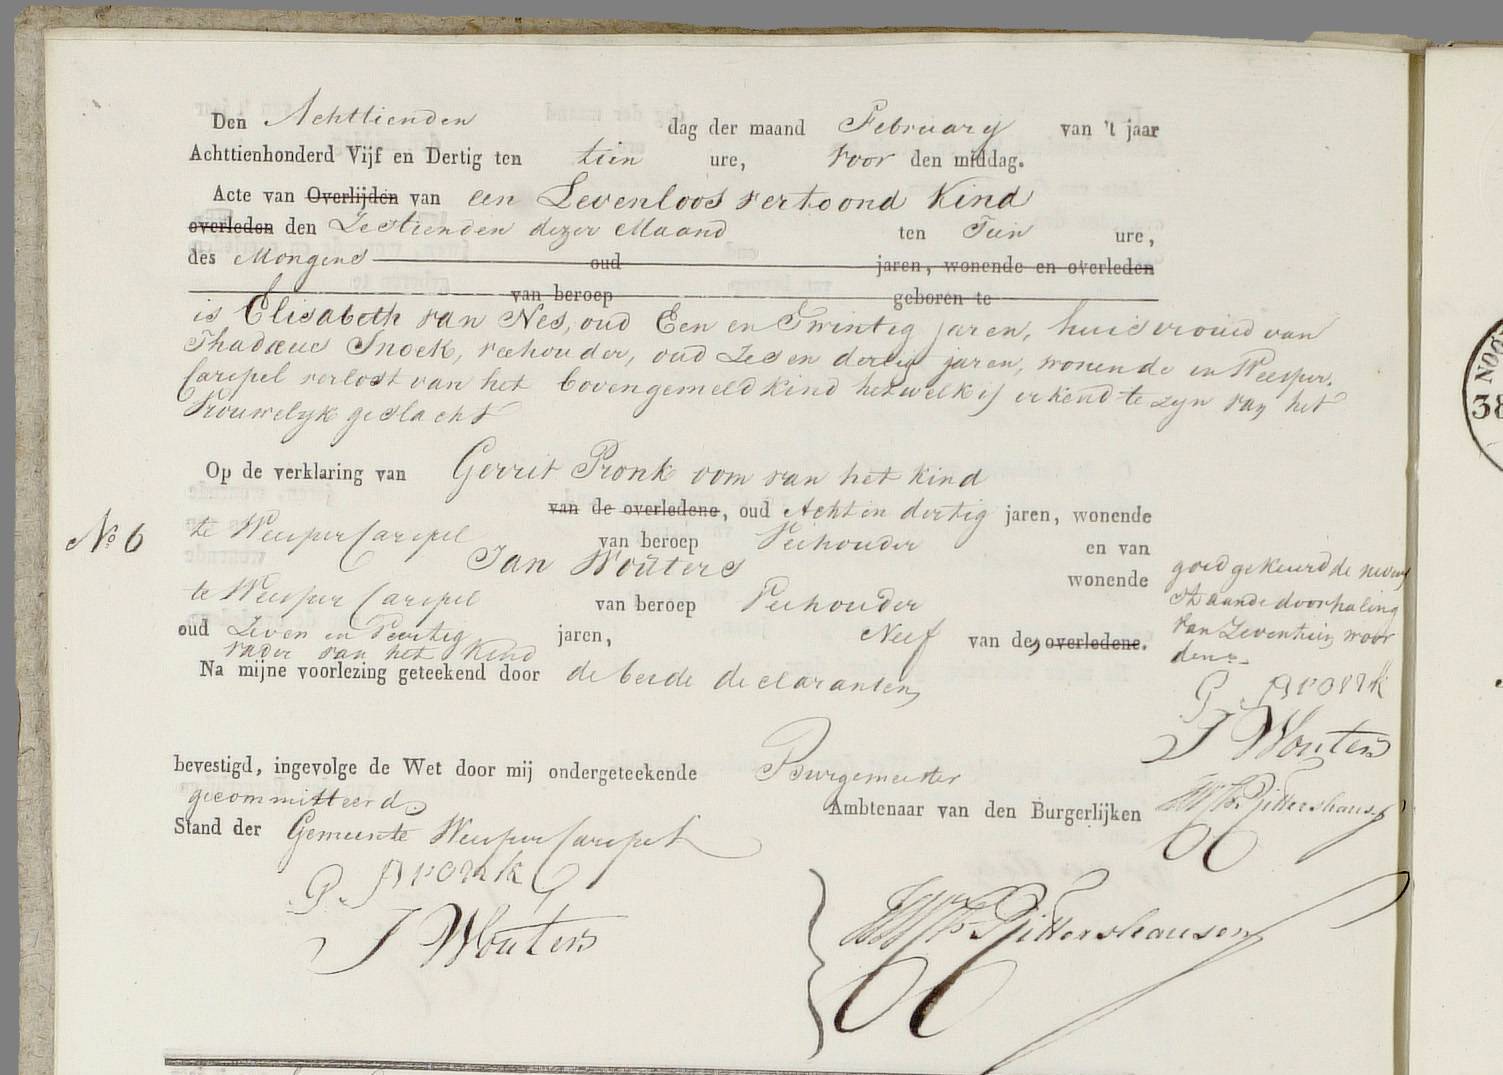 Den Achttienden dag der maand February van 't jaar
Achttienhonderd Vijf en Dertig ten tien ure, voor den middag.
Acte van Overlijden van een Levenloos vertoond Kind
overleden den Zestienden dezer Maand ten Tien ure,
des Morgens oud jaren, wonende en overleden
van beroep geboren te
is Elisabeth van Nes, oud Een en Twintig jaren, huisvrouw van
Thadæus Snoek, veehouder, oud Zes en dertig jaren, wonende in Weesper
Carspel verlost van het bovengemeld kind hetwelk is erkend te zyn van het
Vrouwelyk geslacht
Op de verklaring van Gerrit Pronk oom van het kind
van de overledene, oud Acht en dertig jaren, wonende
No 6
te Weesper Carspel van beroep Veehouder en van
Jan Wouters wonende
te Weesper Carspel van beroep Veehouder
oud Zeven en Veertig jaren, Neef van de overledene.
vader van het Kind
Na mijne voorlezing geteekend door de beide declaranten
goedgekeurd de nevens
staande doorhaling
van Zeventien woor
den
G. Pronk
J Wouters
bevestigd, ingevolge de Wet door mij ondergeteekende Burgemeester
gecommitteerd Ambtenaar van den Burgerlijken
Rittershausen
Stand der Gemeente Weesper Carspel
G. Pronk
J Wouters
Rittershausen
38